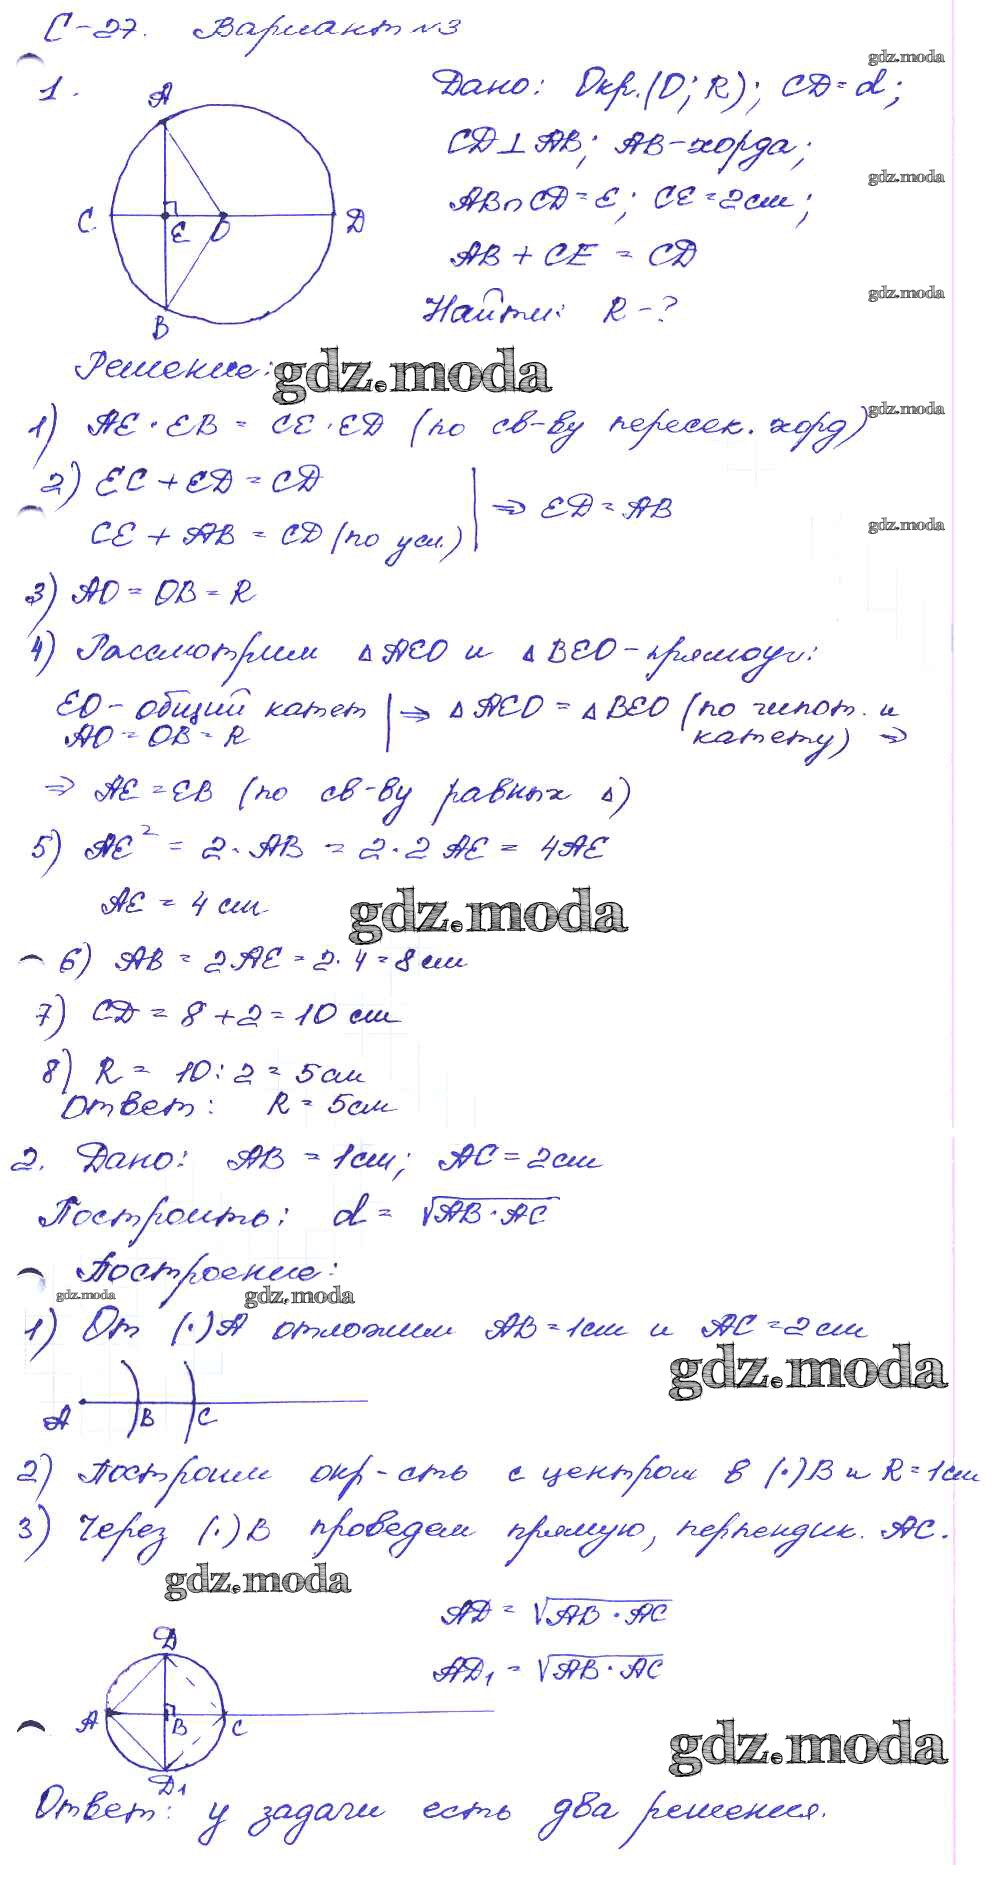 С-27. Вариант №3
gdz.moda
1.
A
C
E
O
D
B
Дано: Окр.(O; R); CD=d;
CD⊥AB; AB-хорда;
gdz.moda
AB∩CD=E; CE=2см;
AB + CE = CD
gdz.moda
Найти: R-?
Решение:
gdz.moda
1) AE · EB = CE · ED (по св-ву пересек. хорд)
gdz.moda
2) EC + ED = CD
CE + AB = CD (по усл.) | ⇒ ED = AB
gdz.moda
3) AO = OB = R
4) Рассмотрим △AEO и △BEO-прямоуг:
EO-общий катет | ⇒ △AEO = △BEO (по гипот. и
AO = OB = R катету) ⇒
⇒ AE = EB (по св-ву равных △)
5) AE² = 2 · AB = 2 · 2 AE = 4AE
AE = 4 см
gdz.moda
6) AB = 2AE = 2 · 4 = 8см
7) CD = 8 + 2 = 10 см
8) R = 10 : 2 = 5см
Ответ: R = 5см
2. Дано: AB = 1см; AC = 2см
Построить: d = √AB · AC
Построение:
gdz.moda
gdz.moda
1) От (·)A отложим AB = 1см и AC = 2см
gdz.moda
A B C
2) Построим окр-сть с центром в (·)B и R = 1см
3) Через (·)B проведем прямую, перпендик. AC.
gdz.moda
AD = √AB · AC
AD₁ = √AB · AC
D
A
B
C
D₁
gdz.moda
Ответ: у задачи есть два решения.